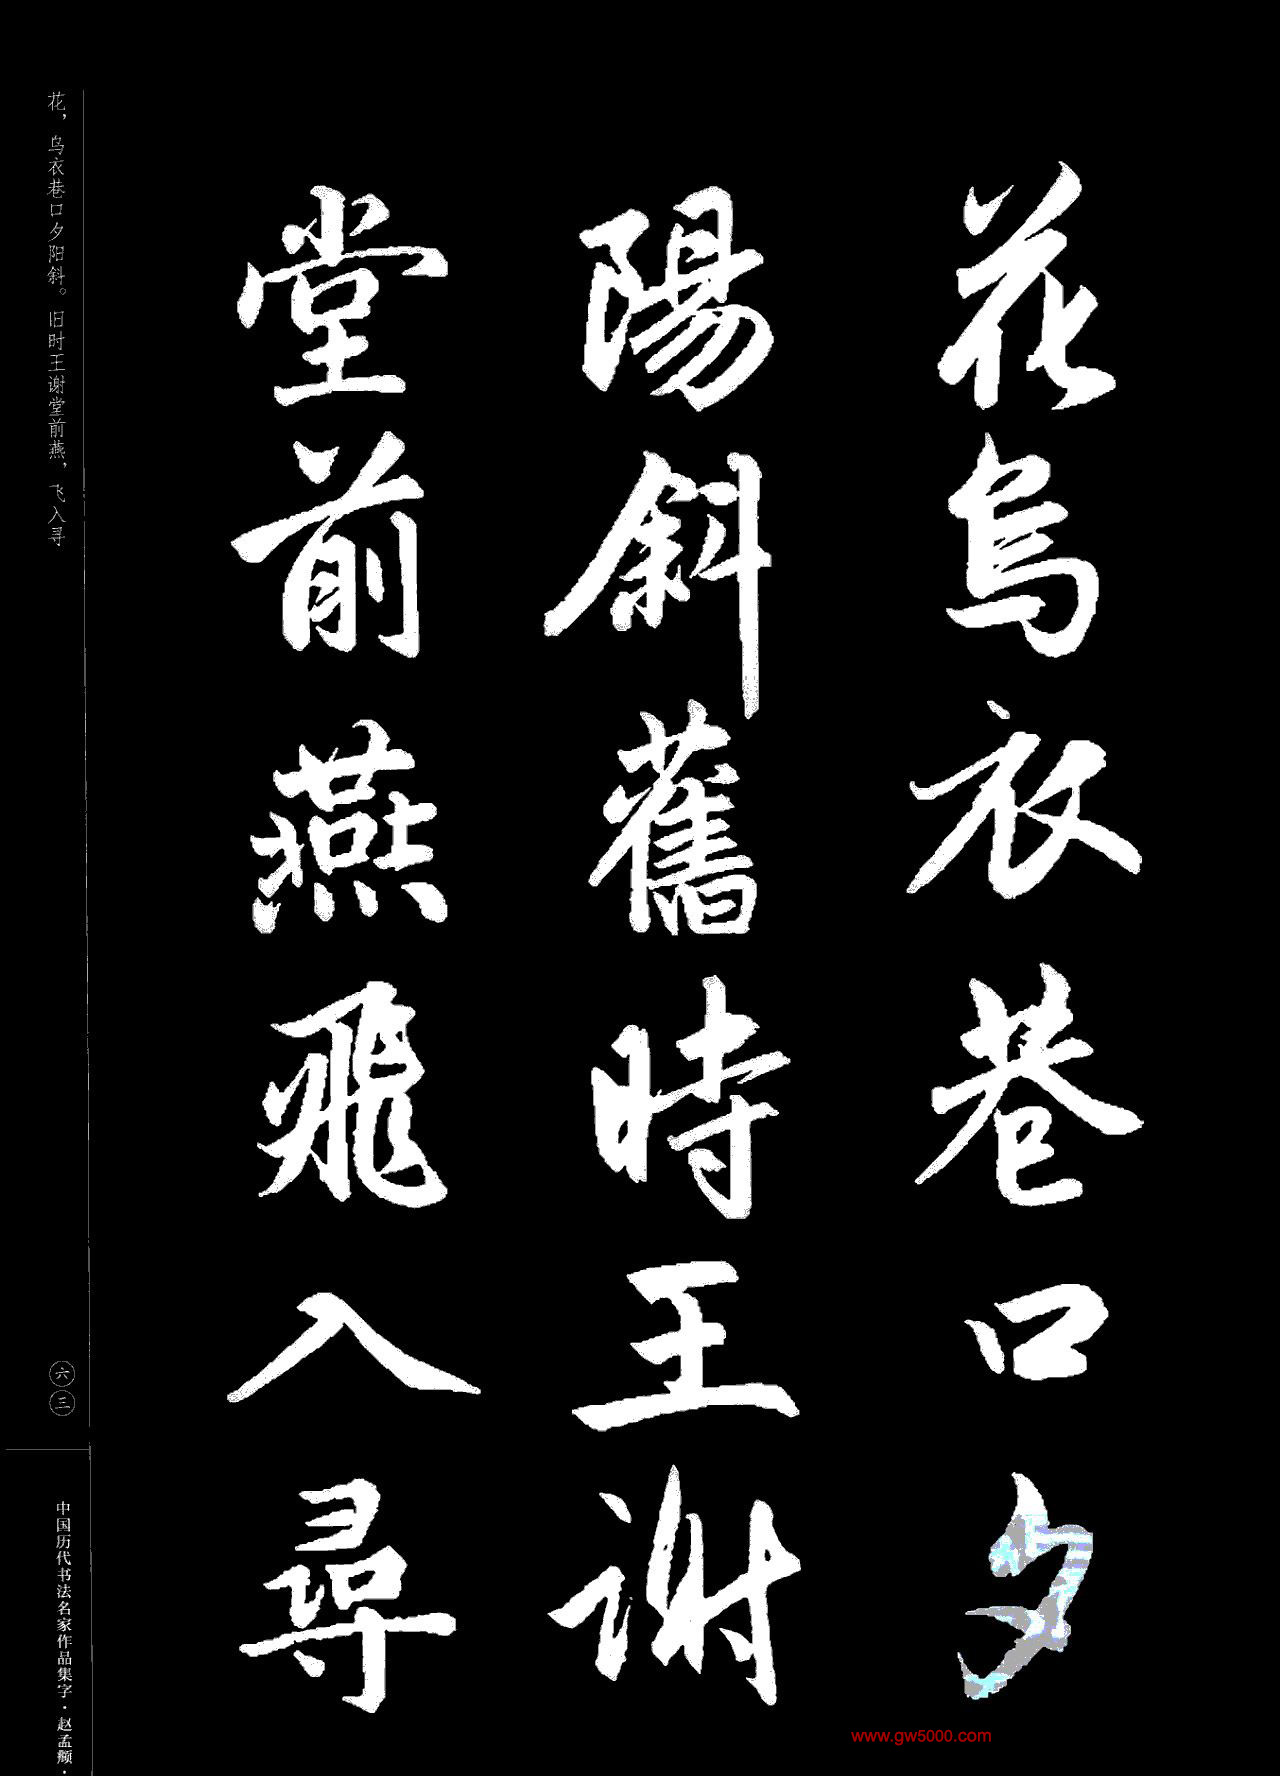 花烏衣巷口夕
陽斜舊時王謝
堂前燕飛入尋
花，乌衣巷口夕阳斜。旧时王谢堂前燕，飞入寻
六三
中国历代书法名家作品集字·赵孟頫·
www.gw5000.com